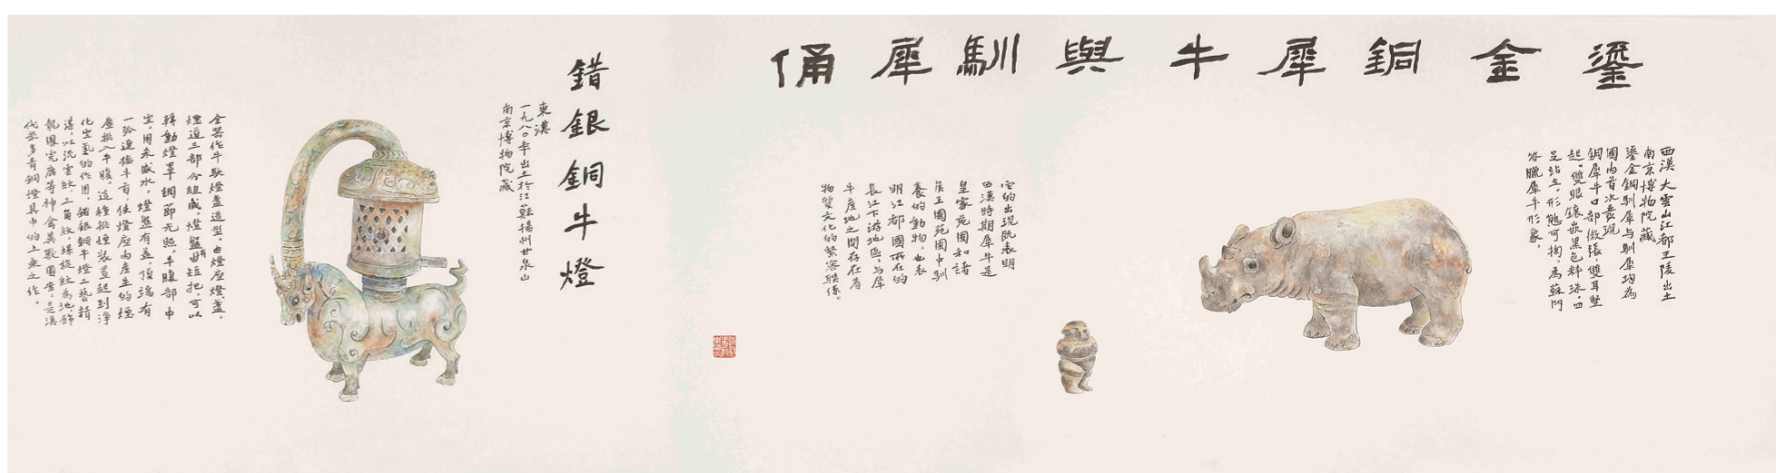 鎏金銅犀牛與馴犀俑
西漢大雲山江都王陵出土
南京博物院藏
鎏金銅馴犀與馴犀均為
國內首次發現
銅犀牛口部微張，雙耳竪
起，雙眼鑲嵌黑色料珠，四
足站立，形態可掬，為蘇門
答臘犀牛形象。
它的出現既表明
西漢時期犀牛是
皇家苑囿和諸
侯王國苑囿中馴
養的動物，也表
明江都國所在的
長江下游地區，與犀
牛產地之間存在着
物質文化的緊密聯係。
錯銀銅牛燈
東漢
一九八〇年出土於江蘇揚州甘泉山
南京博物院藏
全器作牛馱燈盞造型，由燈座、燈盞、
煙道三部分組成，燈盤有短把，可以
轉動燈罩調節光照，牛腹部中
空，用來盛水，燈盤有蓋，頂端有
一弧連接牛首，使燈座內產生的煙
塵排入牛腹，這種排煙裝置起到淨
化空氣的作用，錯銀銅牛燈工藝精
湛，以流雲紋、三角紋、螺旋紋為地，飾
龍鳳虎鹿等神禽異獸圖案，是漢
代眾多青銅燈具中的上乘之作。